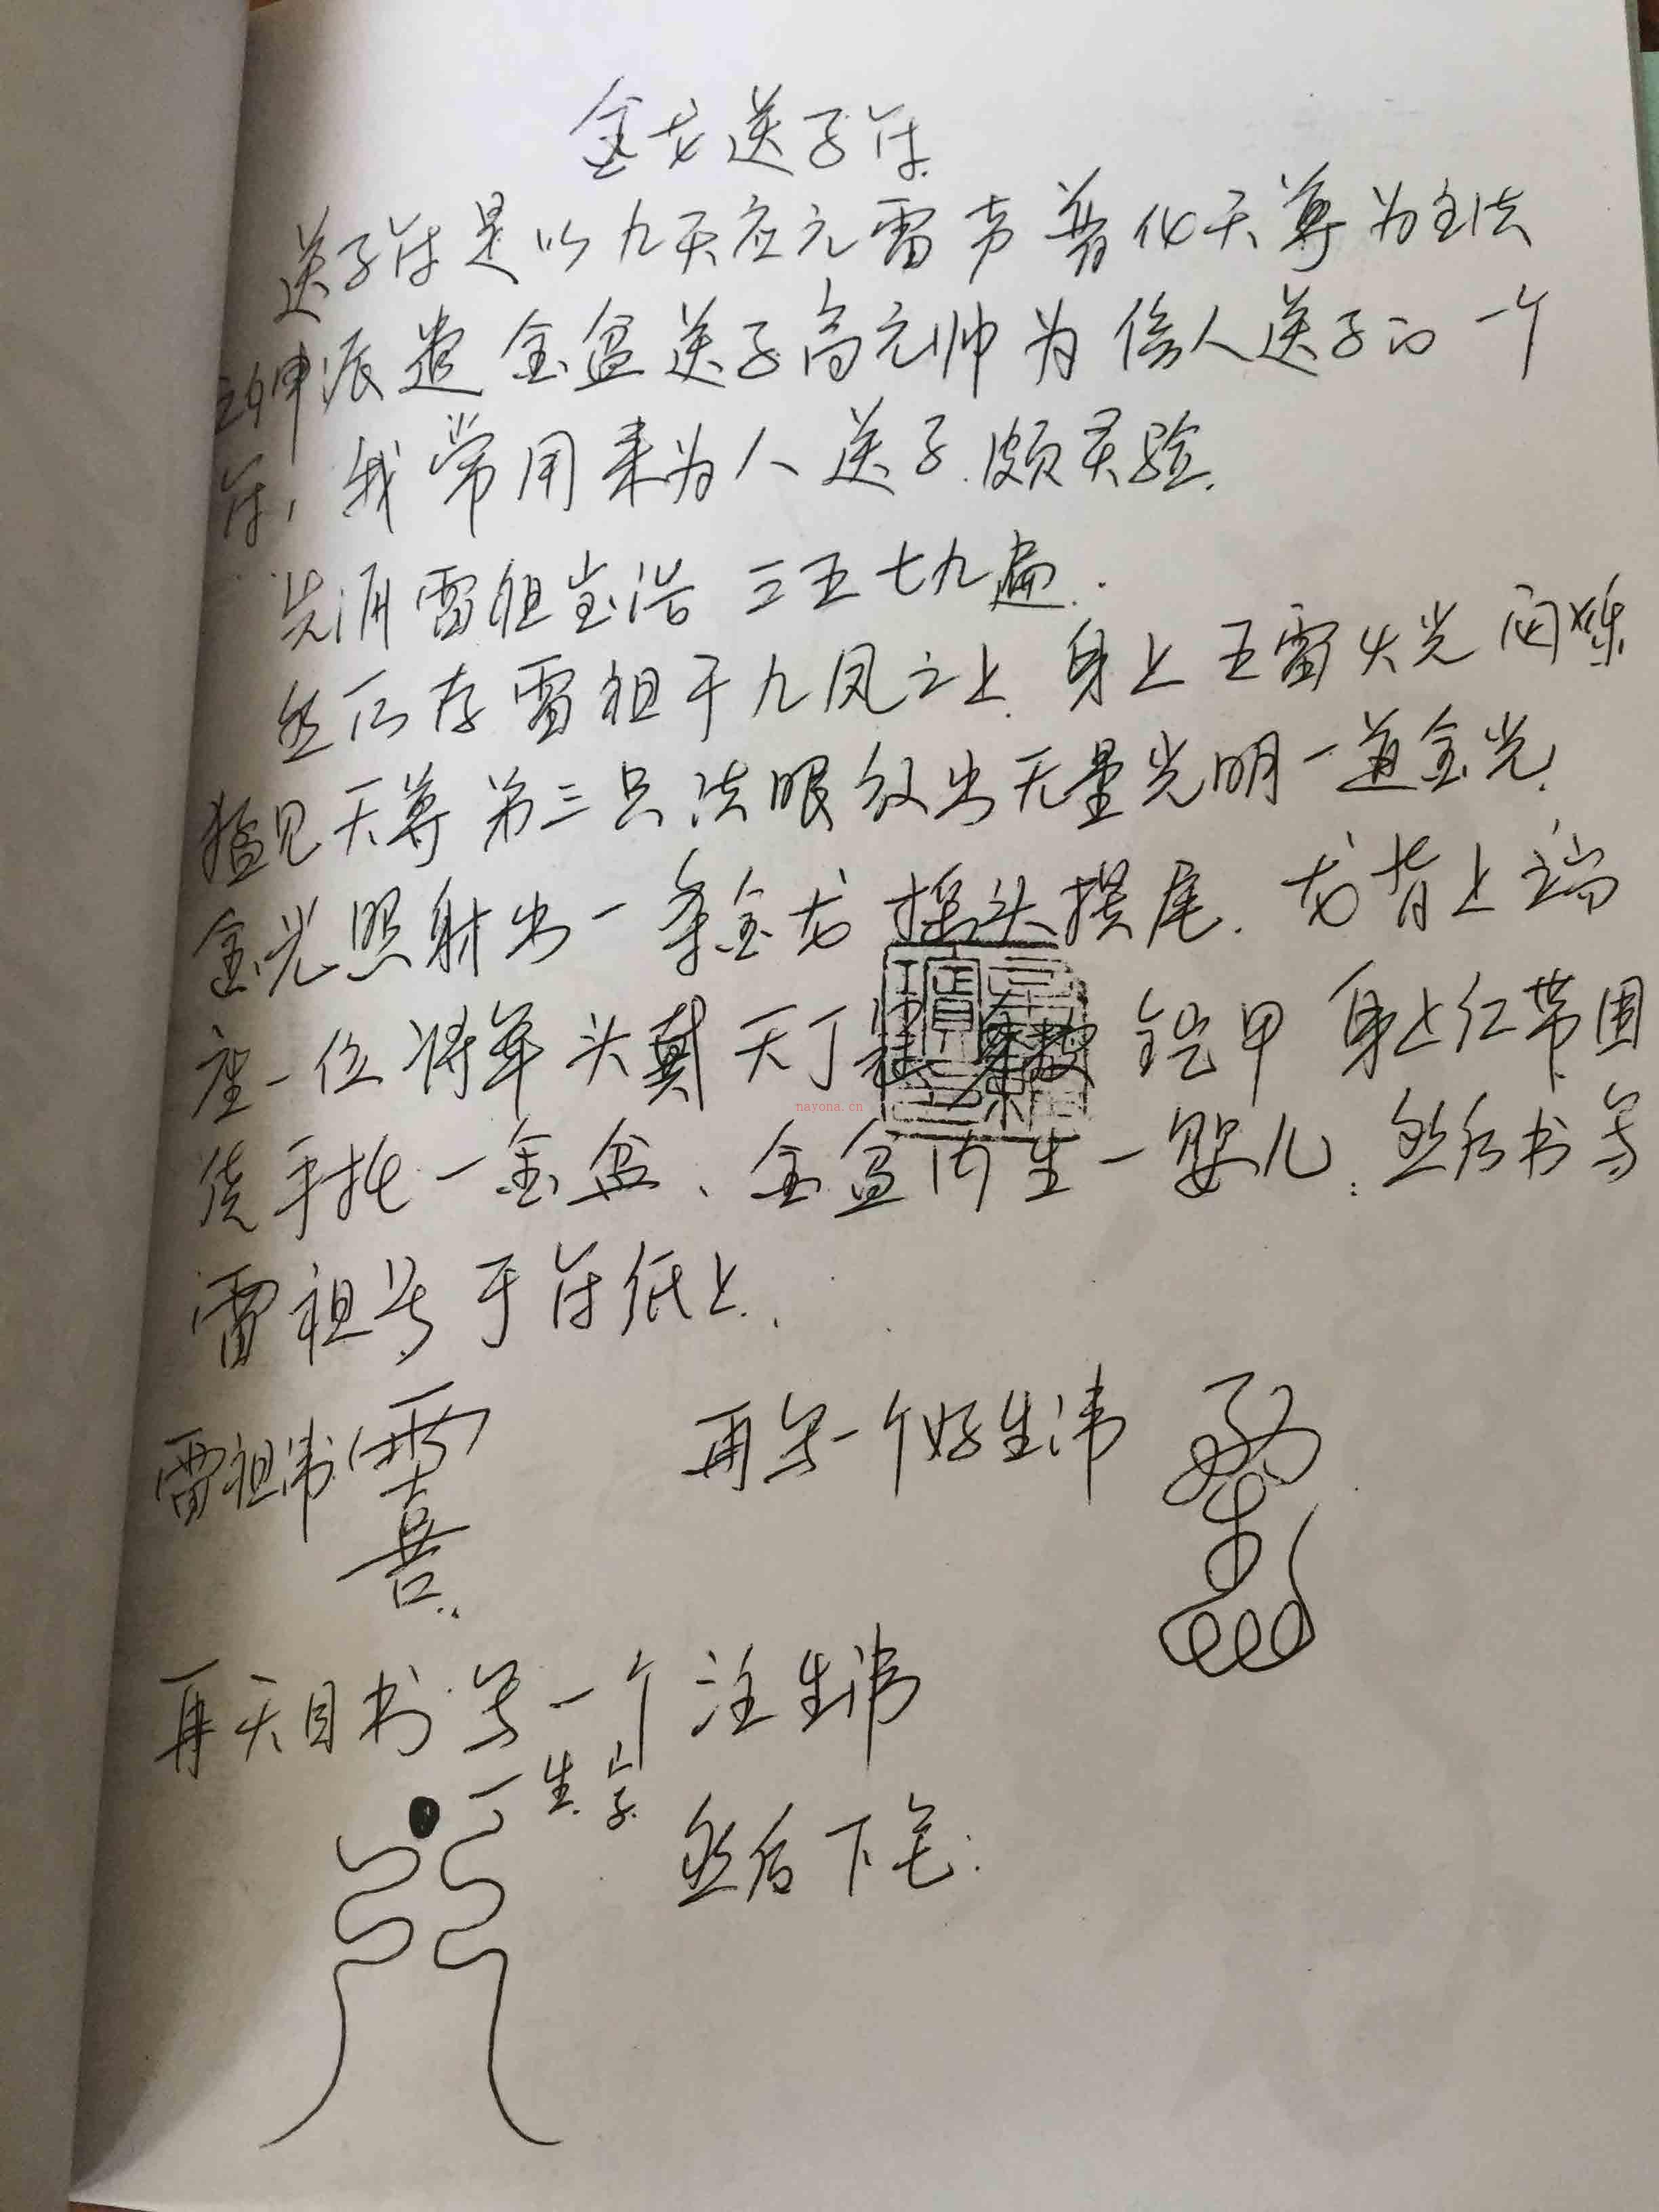 金龙送子符
送子符是以九天应元雷声普化天尊为主法
主神派遣金盆送子高元帅为信人送子的一个
符，我常用来为人送子.颇灵验.
先诵雷祖宝诰三五七九遍.
然后存雷祖于九凤之上.身上五雷火光闪烁
猛见天尊第三只法眼放出无量光明一道金光.
金光照射出一条金龙摇头摆尾.龙背上端
座一位将军头戴天丁冠身披铠甲身上红带围
绕手托一金盆、金盆内生一婴儿:然后书写
雷祖号于符纸上.
雷祖讳 再写一个好生讳
再天目书写一个注生讳
一生字
然后下笔:
nayona.cn